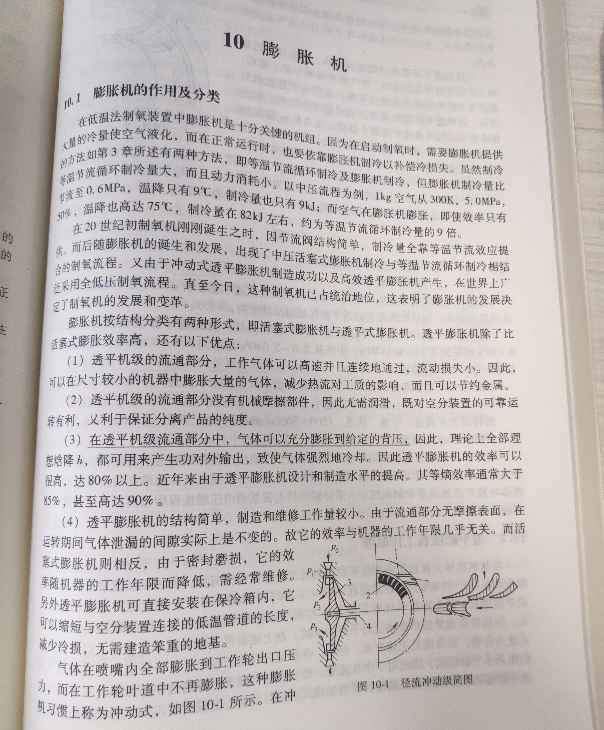 10 膨胀机
10.1 膨胀机的作用及分类
在低温法制氧装置中膨胀机是十分关键的机组。因为在启动制氧时，需要膨胀机提供
大量的冷量使空气液化，而在正常运行时，也要依靠膨胀机制冷以补偿冷损失。虽然制冷
的方法如第 3 章所述有两种方法，即等温节流循环制冷及膨胀机制冷，但膨胀机制冷量比
等温节流循环制冷量大，而且动力消耗小。以中压流程为例，1kg 空气从 300K、5.0MPa，
节流至 0.6MPa，温降只有 9℃，制冷量也只有 9kJ；而空气在膨胀机膨胀，即使效率只有
50%，温降也高达 75℃，制冷量在 82kJ 左右，约为等温节流循环制冷量的 9 倍。
在 20 世纪初制氧机刚刚诞生之时，因节流阀结构简单，制冷量全靠等温节流效应提
供。而后随膨胀机的诞生和发展，出现了中压活塞式膨胀机制冷与等温节流循环制冷相结
合的制氧流程。又由于冲动式透平膨胀机制造成功以及高效透平膨胀机产生，在世界上广
泛采用全低压制氧流程。直至今日，这种制氧机已占统治地位，这表明了膨胀机的发展决
定了制氧机的发展和变革。
膨胀机按结构分类有两种形式，即活塞式膨胀机与透平式膨胀机。透平膨胀机除了比
活塞式膨胀效率高，还有以下优点：
（1）透平机级的流通部分，工作气体可以高速并且连续地通过，流动损失小。因此，
可以在尺寸较小的机器中膨胀大量的气体，减少热流对工质的影响，而且可以节约金属。
（2）透平机级的流通部分没有机械摩擦部件，因此无需润滑，既对空分装置的可靠运
转有利，又利于保证分离产品的纯度。
（3）在透平机级流通部分中，气体可以充分膨胀到给定的背压，因此，理论上全部理
想焓降 h，都可用来产生功对外输出，致使气体强烈地冷却。因此透平膨胀机的效率可以
很高，达 80%以上。近年来由于透平膨胀机设计和制造水平的提高，其等熵效率通常大于
85%，甚至高达 90%。
（4）透平膨胀机的结构简单，制造和维修工作量较小。由于流通部分无摩擦表面，在
运转期间气体泄漏的间隙实际上是不变的。故它的效率与机器的工作年限几乎无关。而活
塞式膨胀机则相反，由于密封磨损，它的效
率随机器的工作年限而降低，需经常维修。
另外透平膨胀机可直接安装在保冷箱内，它
可以缩短与空分装置连接的低温管道的长度，
减少冷损，无需建造笨重的地基。
气体在喷嘴内全部膨胀到工作轮出口压
力，而在工作轮叶道中不再膨胀，这种膨胀
机习惯上称为冲动式，如图 10-1 所示。在冲
图 10-1 径流冲动级简图